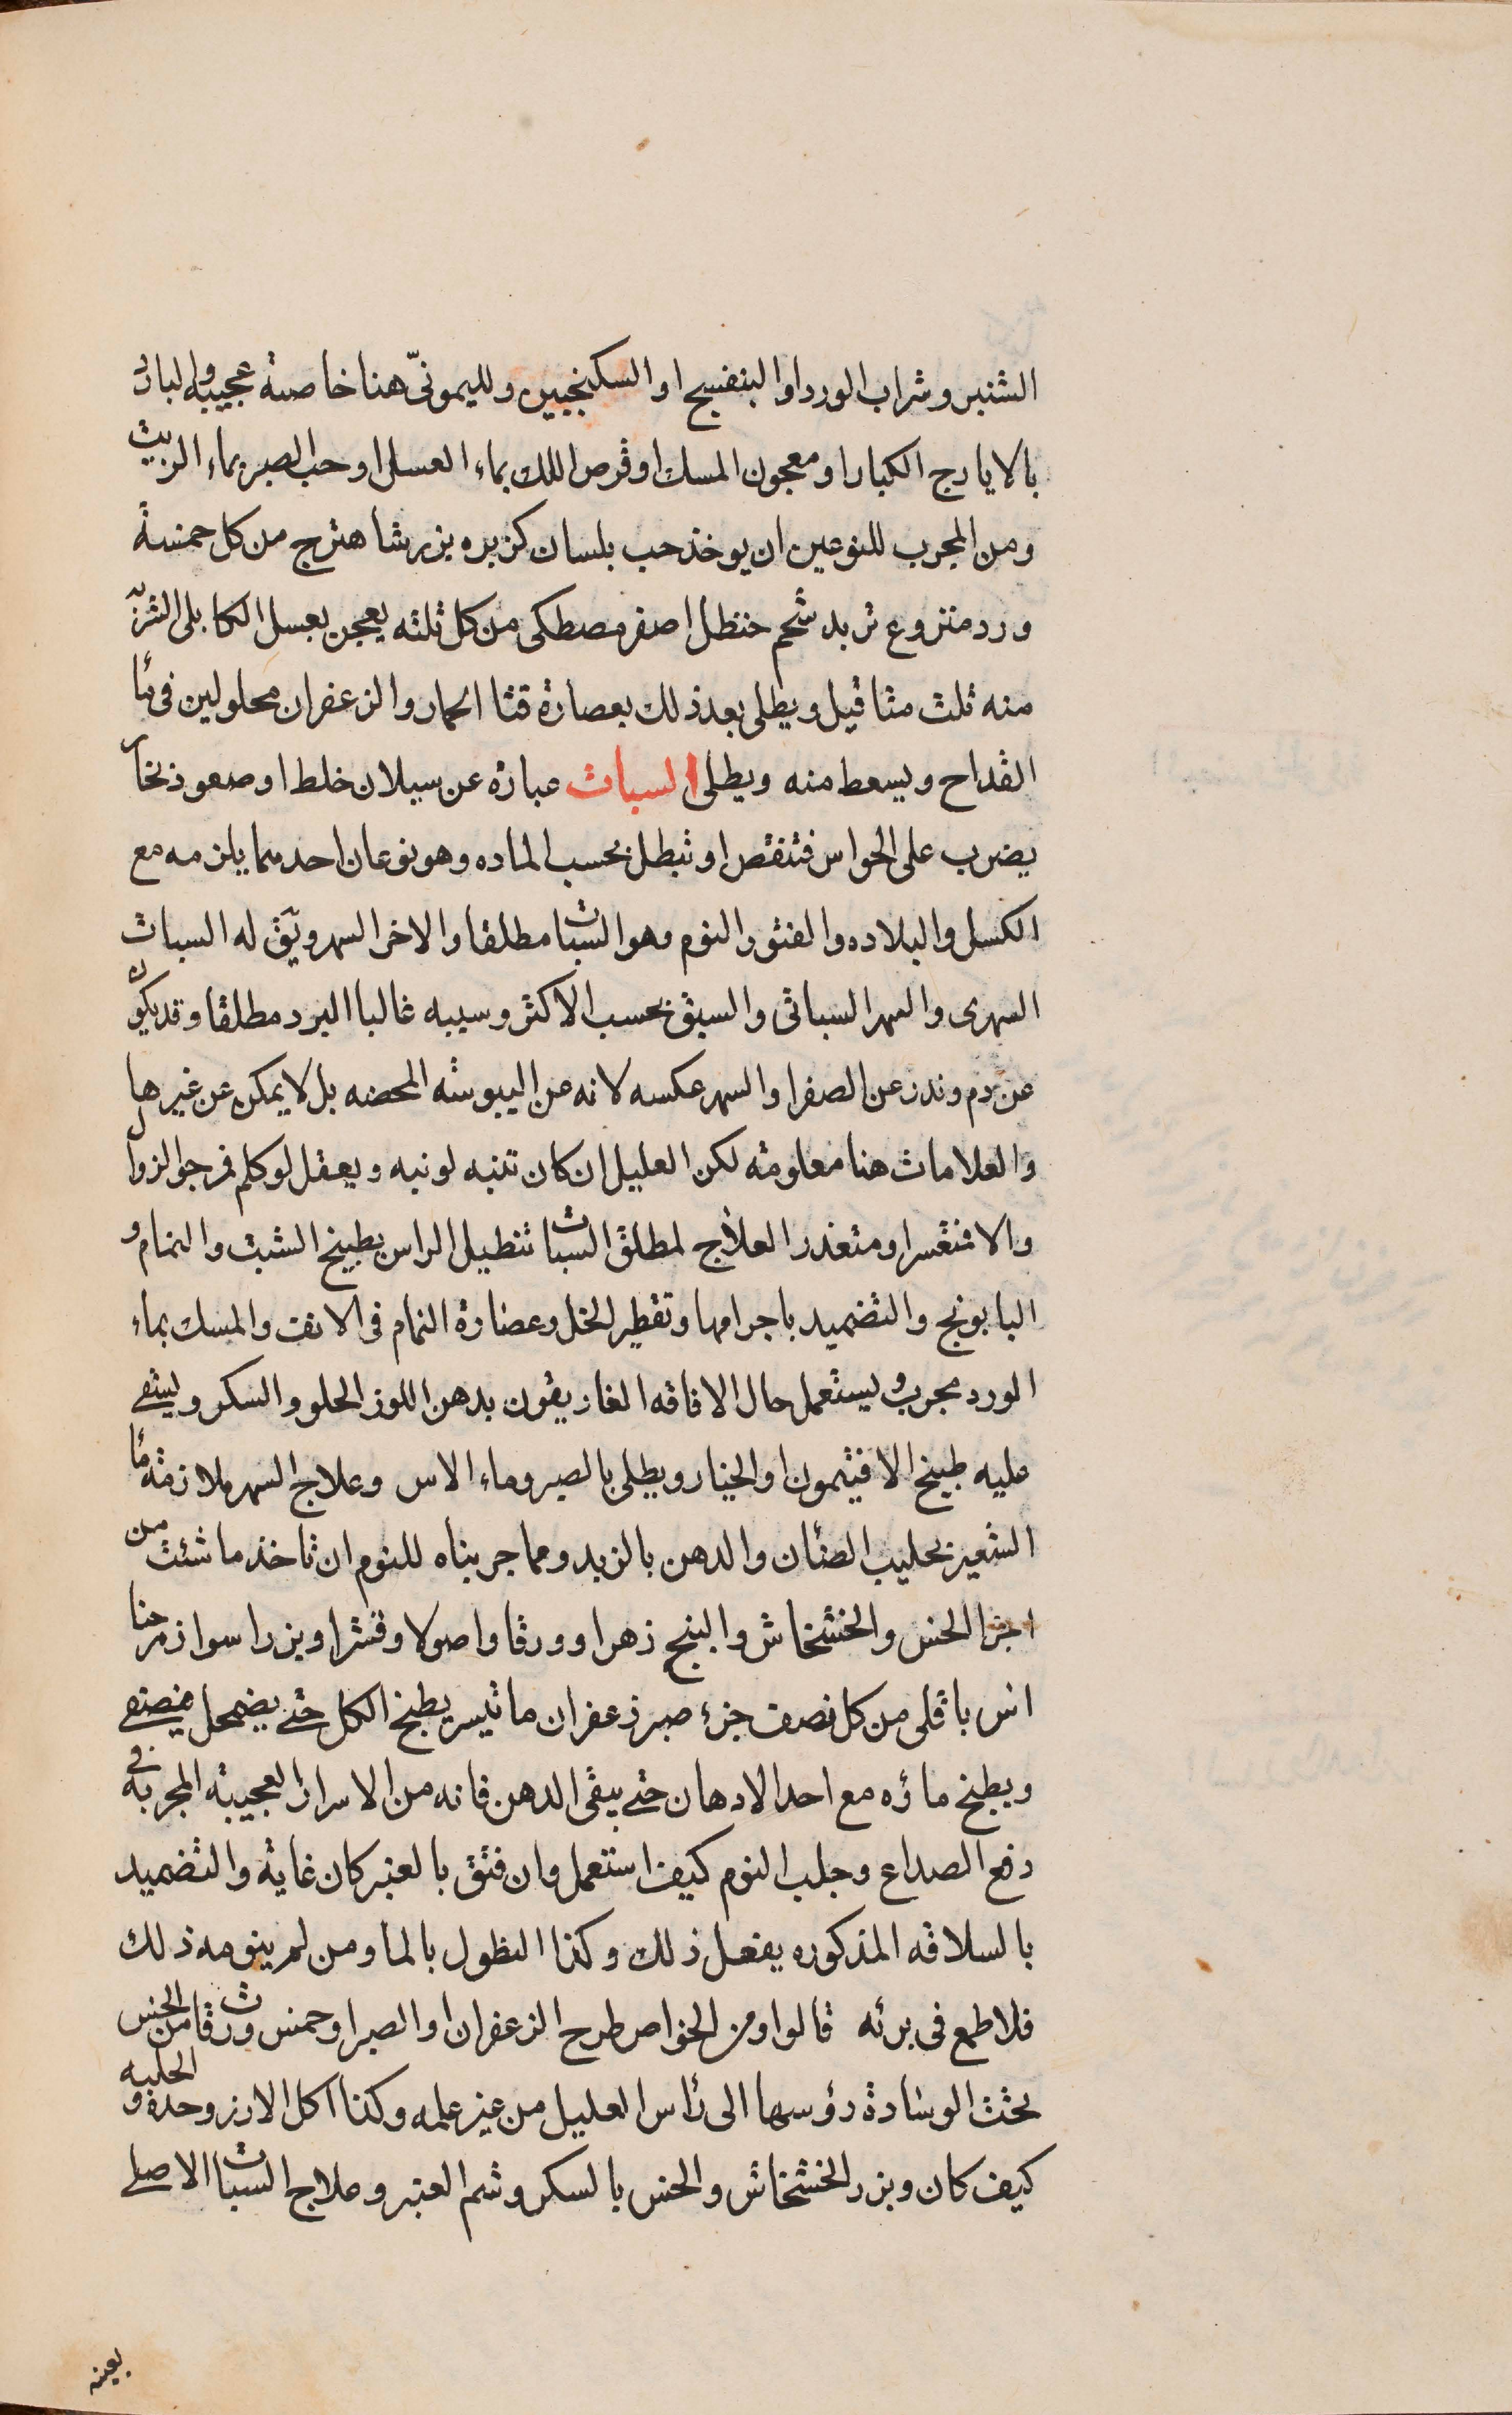 الشنبر وشراب الورد او البنفسج او السكنجبين ولليمونىّ هنا خاصة عجيبه والبارد
بالايارج الكبار او معجون المسك او قرص اللك بماء العسل او حب الصبر بماء الزبيب
ومن المجرب للنوعين ان يوخذ حب بلسان كزبره بزر شاهترج من كل خمسة
ورد منزوع تربد شحم حنظل اصفر مصطكى من كل ثلثه يعجن بعسل الكابلى الشربه
منه ثلث مثاقيل ويطلى بعد ذلك بعصارة قثا الحمار والزعفران محلولين فى ماء
القداح ويسعط منه ويطلى السبات عبارة عن سيلان خلط او صعود بخار
يضرب على الحواس فتنقص او تبطل بحسب الماده وهو نوعان احدهما يلزمه مع
الكسل والبلاده والفتور النوم وهو السبات مطلقا والاخر السهر ويق له السبات
السهرى والسهر السباتى والسبق بحسب الاكثر وسببه غالبا البرد مطلقا وقد يكون
عن دم وندر عن الصفرا والسهر عكسه لانه عن اليبوسة المحضه بل لا يمكن عن غيرها
والعلامات هنا معلومة لكن العليل ان كان تنبه لو نبه ويعقل لو كلم فرجو الزوال
والا فتعسر او متعذر العلاج لمطلق السبات تنطيل الراس بطبيخ الشبت والنمام و
البابونج والتضميد باجرامها وتقطير الخل وعصارة النمام فى الانف والمسك بماء
الورد مجرب ويستعمل حال الافاقه الغاريقون بدهن اللوز الحلو والسكر ويسقى
عليه طبيخ الافيثمون او الخيار ويطلى بالصبر وماء الاس وعلاج السهر ملازمة ماء
الشعير بحليب الضئان والدهن بالزبد ومما جربناه للنوم ان تاخذ ما شئت من
اجزا الخس والخشخاش والبنج زهرا وورقا واصولا وقشرا وبزرا سوا زر حنا
اس باقلى من كل نصف جزء صبر زعفران ما تيسر يطبخ الكل حتى يضمحل فيصفى
ويطبخ ماؤه مع احد الادهان حتى يبقى الدهن فانه من الاسرار العجيبة المجربة فى
دفع الصداع وجلب النوم كيف استعمل وان فتق بالعنبر كان غاية والتضميد
بالسلاقه المذكوره يفعل ذلك وكذا النطول بالماء ومن لم ينومه ذلك
فلا طمع فى برئه قالوا ومن الخواص طرح الزعفران او الصبر او خمس ورقات من الخس
تحت الوسادة رؤسها الى رأس العليل من غير علمه وكذا اكل الارز وحده والحلبه
كيف كان وبزر الخشخاش والخس بالسكر وشم العنبر وعلاج السبات الاصلى
بعينه